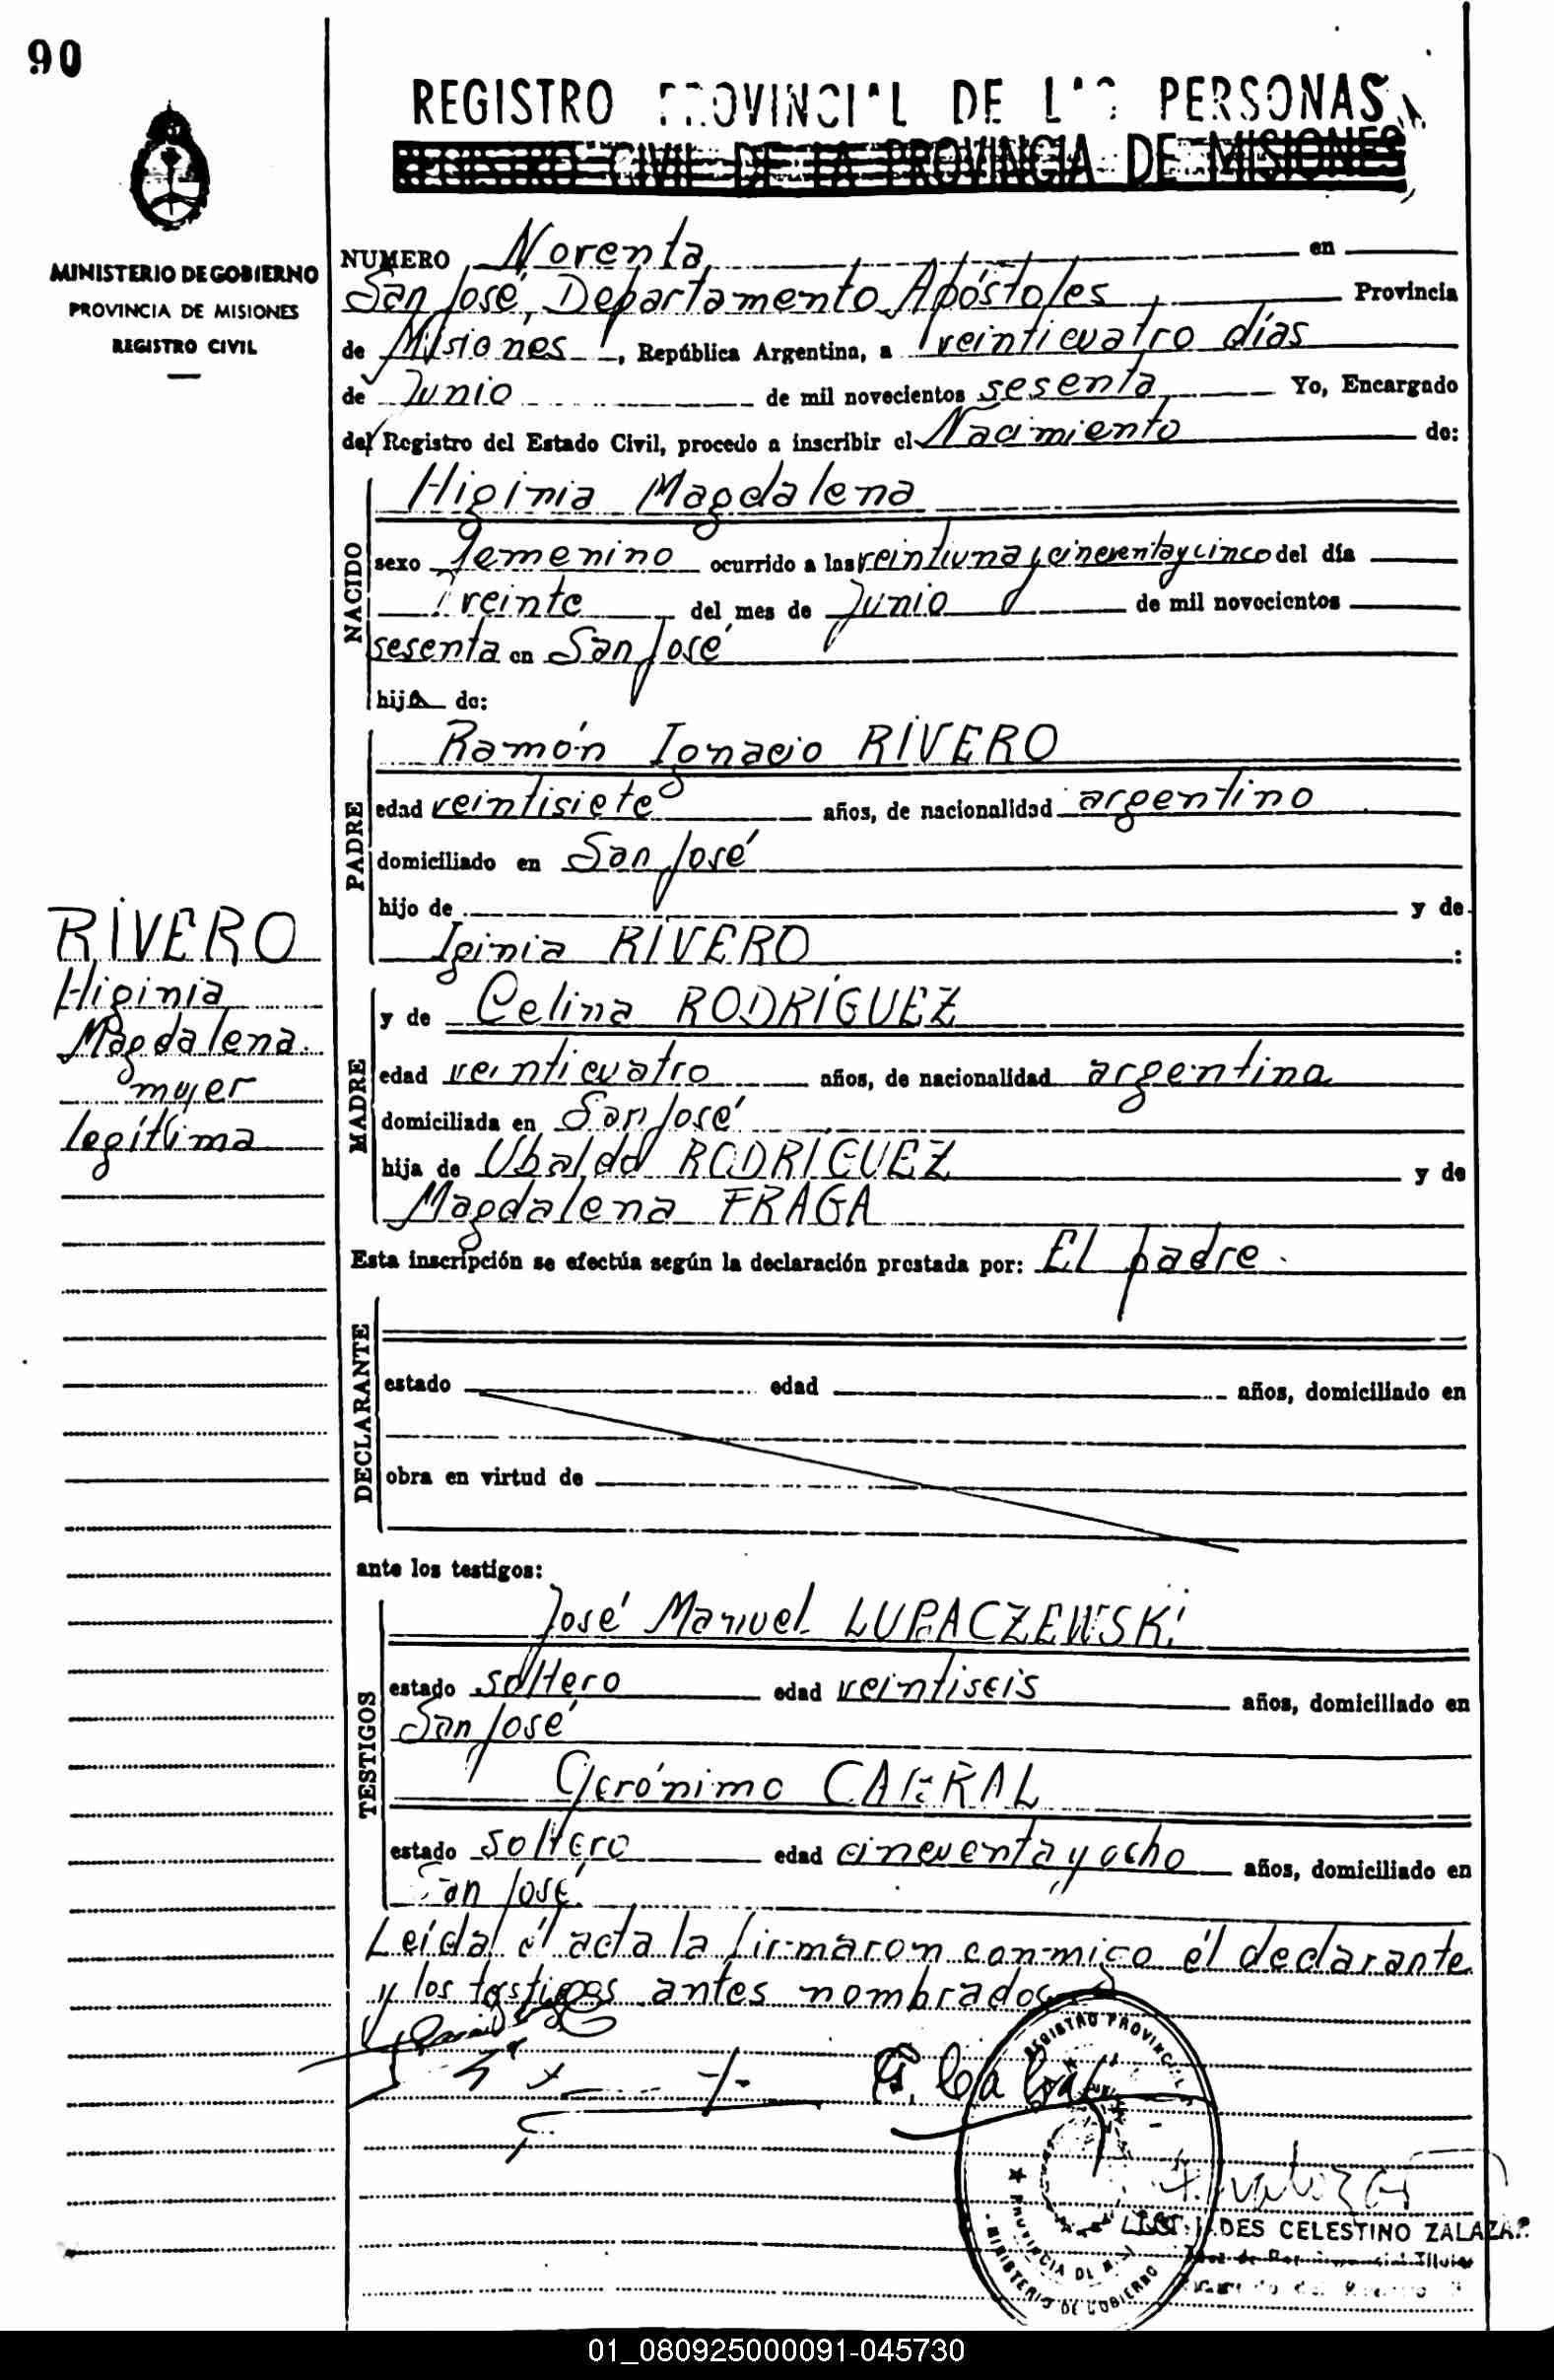 90
REGISTRO PROVINCIAL DE LAS PERSONAS
REGISTRO CIVIL DE LA PROVINCIA DE MISIONES
MINISTERIO DE GOBIERNO
PROVINCIA DE MISIONES
REGISTRO CIVIL
NUMERO Norenta en
San José, Departamento Apóstoles Provincia
de Misiones, República Argentina, a veinticuatro días
de Junio de mil novecientos sesenta Yo, Encargado
del Registro del Estado Civil, procedo a inscribir el Nacimiento de:
NACIDO
Higinia Magdalena
sexo femenino ocurrido a las veintiuna y cincuenta y cinco del día
veinte del mes de Junio de mil novecientos
sesenta en San José
hija de:
PADRE
Ramón Ignacio RIVERO
edad veintisiete años, de nacionalidad argentino
domiciliado en San José
hijo de y de
Iginia RIVERO :
RIVERO
Higinia
Magdalena
mujer
legítima
MADRE
y de Celina RODRÍGUEZ
edad veinticuatro años, de nacionalidad argentina
domiciliada en San José
hija de Ubaldo RODRIGUEZ y de
Magdalena FRAGA
Esta inscripción se efectúa según la declaración prestada por: El padre.
DECLARANTE
estado edad años, domiciliado en
obra en virtud de
ante los testigos:
TESTIGOS
José Manuel LUPACZEWSKI
estado soltero edad veintiseis años, domiciliado en
San José
Gerónimo CABRAL
estado soltero edad cincuenta y ocho años, domiciliado en
San José
Leída él acta la firmaron conmigo él declarante
y los testigos antes nombrados
G. Cabral
REGISTRO PROVINCIAL
PROVINCIA DE
MINISTERIO DE GOBIERNO
CELESTINO ZALAZAR
01_080925000091-045730